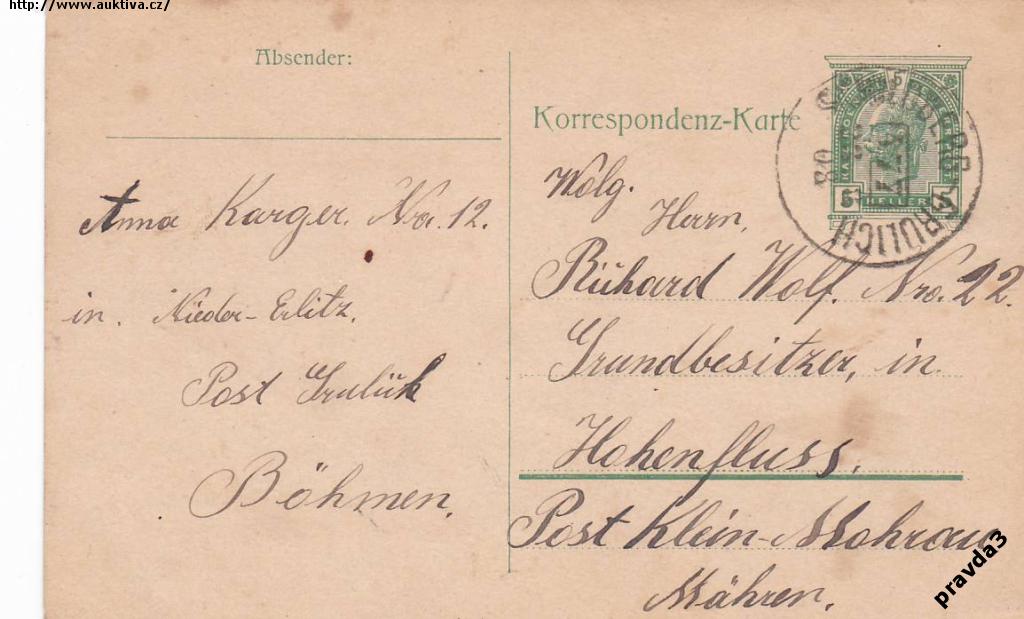 http://www.auktiva.cz/
Absender:
Anna Karger. Nro. 12.
in. Nieder-Erlitz.
Post Grulich
Böhmen.
Korrespondenz-Karte
5
5
HELLER
GRULICH
Wolg.
Herrn,
Richard Wolf. Nro. 22.
Grundbesitzer, in.
Hohenfluss.
Post Klein-Mohrau
Mähren.
pravda3